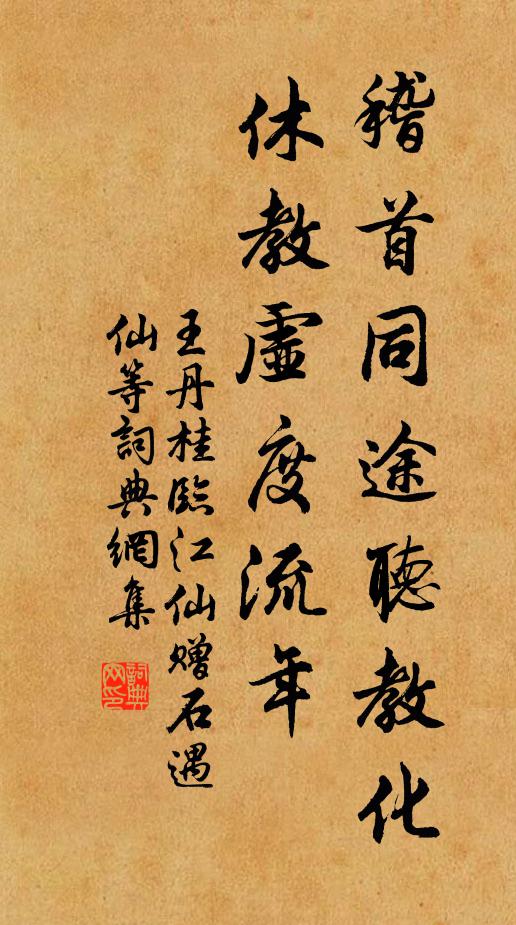 稽首同途聽教化
休教虛度流年
王丹桂臨江仙赠石遇
仙等詞典網集
詞典网印